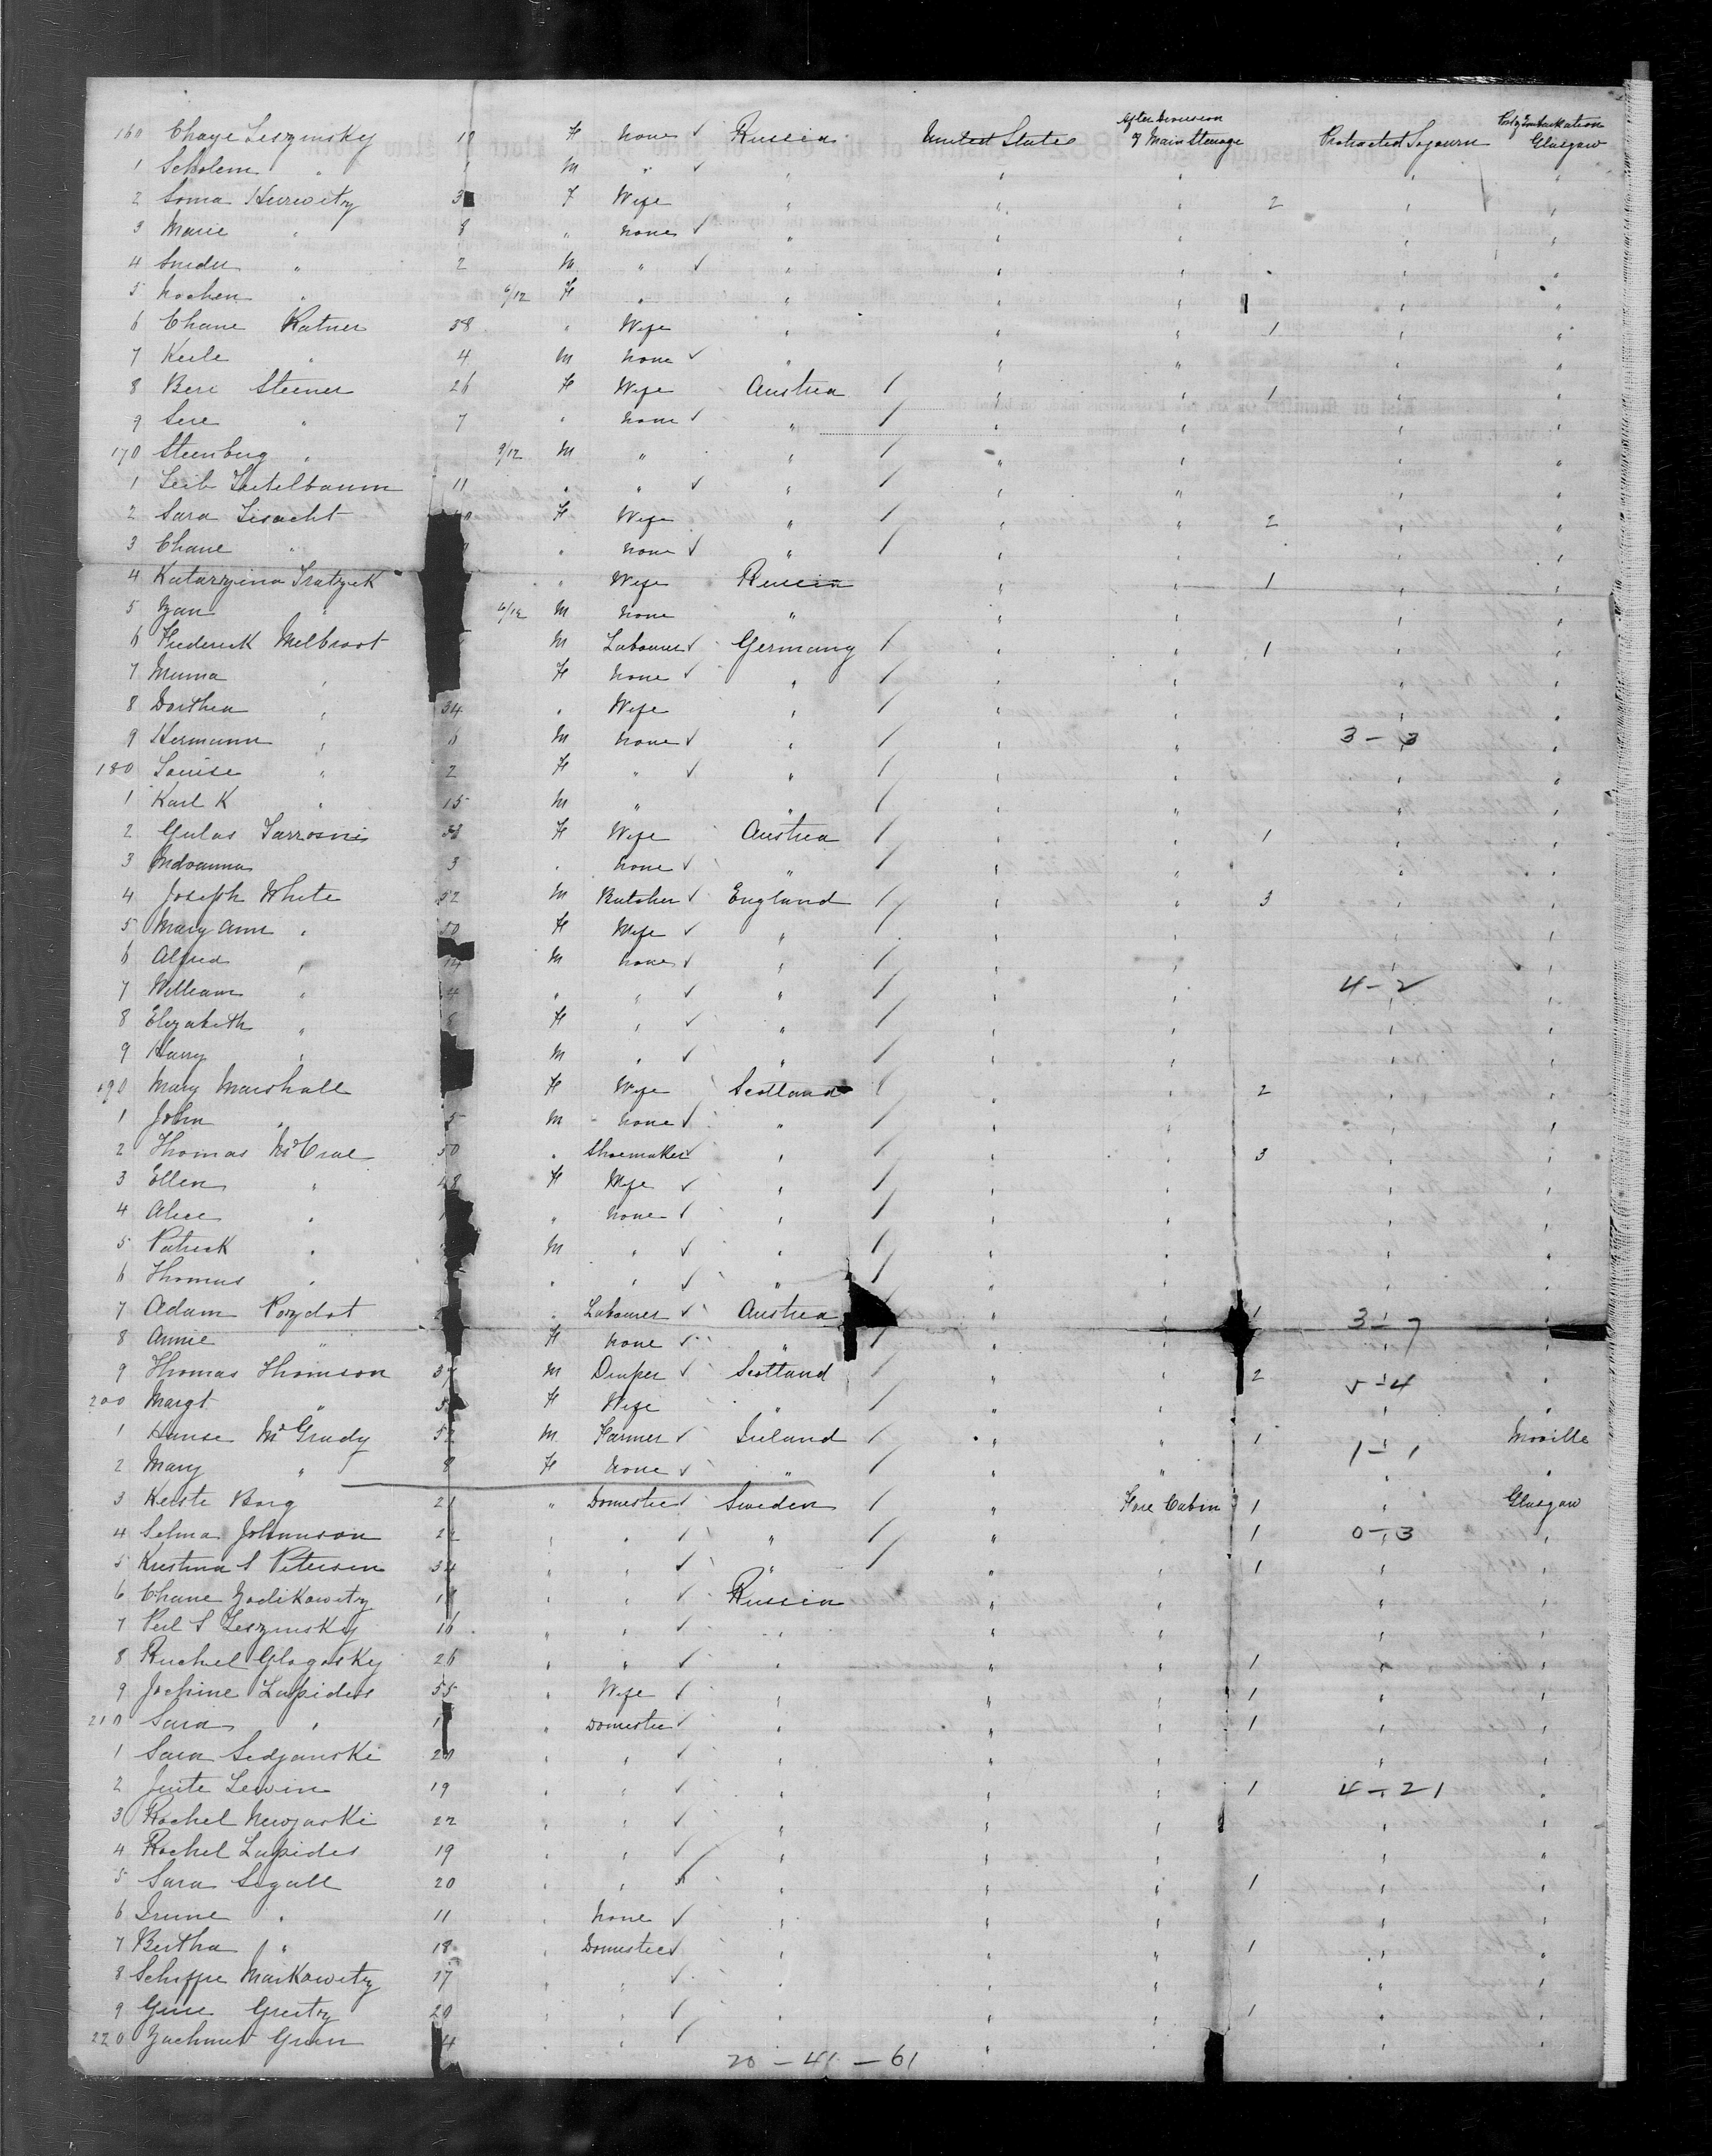 160 Chaye Leszinsky 19 F None ✓ Russia United States After Division of Main Steerage Protracted Sojourn Port of Embarkation Glasgow
1 Scholem " M " ✓ " " " " "
2 Soma Hurwitz 3 F Wife " " " 2 " "
3 Marie " 8 " None ✓ " " " " "
4 " 2 M " ✓ " " " " "
5 Nochen " 6/12 F " " " " " "
6 Chane Ratner 38 " Wife " " " 1 " "
7 Keile " 4 M None ✓ " " " " "
8 Bere Steiner 26 F Wife Austria / " " 1 " "
9 Sere " 7 " None ✓ " / " " " "
170 Steenberg " 9/12 M " " / " " " "
1 Leib Teitelbaum 11 " " ✓ " / " " " "
2 Sara Lisacht F Wife " / " " 2 " "
3 Chane " " None ✓ " / " " " "
4 Katarzyina " Wife Russia " " 1 " "
5 " M None " " " " "
6 Frederick Melbroot M Labourer ✓ Germany / " " 1 " "
7 Minna " F None ✓ " / " " " "
8 Dorthea " 34 " Wife " / " " " "
9 Hermann " M None ✓ " / " " 3-3 "
180 Louise " 2 F " ✓ " / " " " "
1 Karl K " 15 M " " / " " " "
2 Gulas F Wife Austria / " " 1 " "
3 3 " None ✓ " / " " " "
4 Joseph White 52 M Butcher ✓ England / " " 3 " "
5 Mary Ann " 50 F Wife ✓ " / " " " "
6 Alfred " 14 M None ✓ " / " " " "
7 William " 4 " " ✓ " / " " 4-2 "
8 Elizabeth " F " ✓ " / " " " "
9 Harry " M " ✓ " / " " " "
190 Mary Marshall F Wife Scotland / " " 2 " "
1 John " 5 M None ✓ " / " " " "
2 Thomas McCrae 50 " Shoemaker ✓ " / " " 3 " "
3 Ellen " 48 F Wife ✓ " / " " " "
4 Alice " " None ✓ " / " " " "
5 Patrick " M " ✓ " / " " " "
6 Thomas " " " ✓ " / " " " "
7 Adam Pozdot " Labourer ✓ Austria " " 1 3-7 "
8 Annie " F None ✓ " / " " " "
9 Thomas Thomson 37 M Draper ✓ Scotland / " " 2 5-4 "
200 Margt " F Wife " / " " " "
1 McGrady 52 M Farmer ✓ Ireland / " " 1 1-1 Moville
2 Mary " 8 F None ✓ " / " " " "
3 Kerste Borg 21 " Domestic ✓ Sweden / " Fore Cabin 1 " Glasgow
4 Selma Johnnson 22 " " ✓ " / " " 1 0-3 "
5 Kristina S Petersen 34 " " ✓ " / " " 1 " "
6 Chane Zodikowitz 18 " " ✓ Russia " " " "
7 Perl S Leszinsky 16 " " ✓ " " " " "
8 Ruchel Glogosky 26 " " ✓ " " " 1 " "
9 Josephine Lapides 55 " Wife ✓ " " " 1 " "
210 Sara " 1 " Domestic ✓ " " " 1 " "
1 Sara Sedzanski 20 " " ✓ " " " " "
2 Jente Lewin 19 " " ✓ " " " 1 4-21 "
3 Rachel Newjarski 22 " " ✓ " " " " "
4 Rachel Lapides 19 " " ✓ " " " " "
5 Sara Segall 20 " " ✓ " " " 1 " "
6 " 11 " None ✓ " " " " "
7 Bertha " 18 " Domestic ✓ " " " 1 " "
8 Schiffre Markowitz 17 " " ✓ " " " " "
9 20 " " ✓ " " " 1 " "
220 4 " " ✓ " " " "
20 - 41 - 61